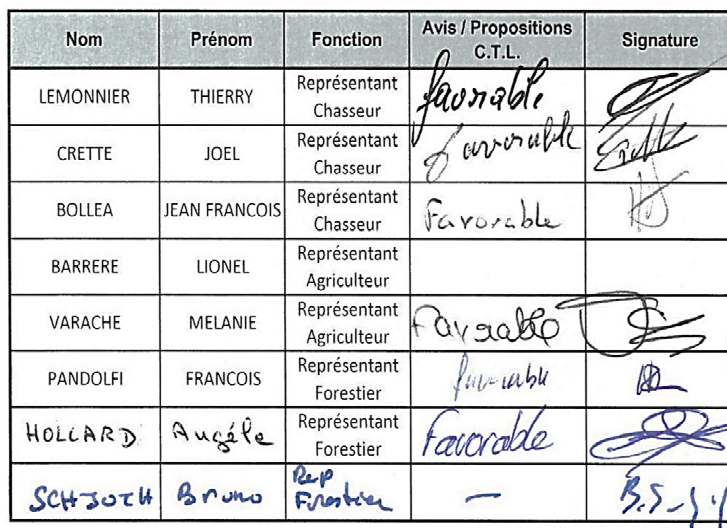 Nom Prénom Fonction Avis / Propositions C.T.L. Signature
LEMONNIER THIERRY Représentant Chasseur favorable
CRETTE JOEL Représentant Chasseur favorable
BOLLEA JEAN FRANCOIS Représentant Chasseur Favorable
BARRERE LIONEL Représentant Agriculteur
VARACHE MELANIE Représentant Agriculteur Favorable
PANDOLFI FRANCOIS Représentant Forestier favorable
HOLLARD Angéle Représentant Forestier Favorable
Bruno Rep Forestier —